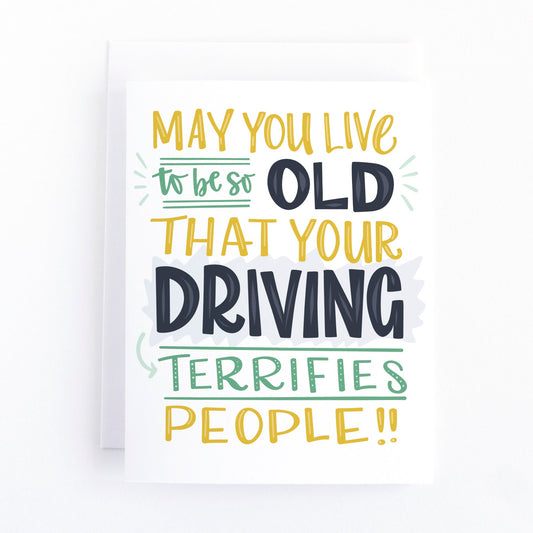 MAY YOU LIVE
to be so OLD
THAT YOUR
DRIVING
TERRIFIES
PEOPLE!!